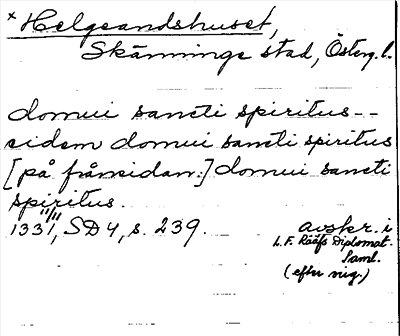 × Helgeandshuset,
Skänninge stad, Österg. l.
domui sancti spiritus--
eidem domui sancti spiritus
[på frånsidan:] domui sancti
spiritus.
11/11
1331, SD4, s. 239.
avskr. i
L. F. Rääfs Diplomat.
Saml.
(efter orig.)